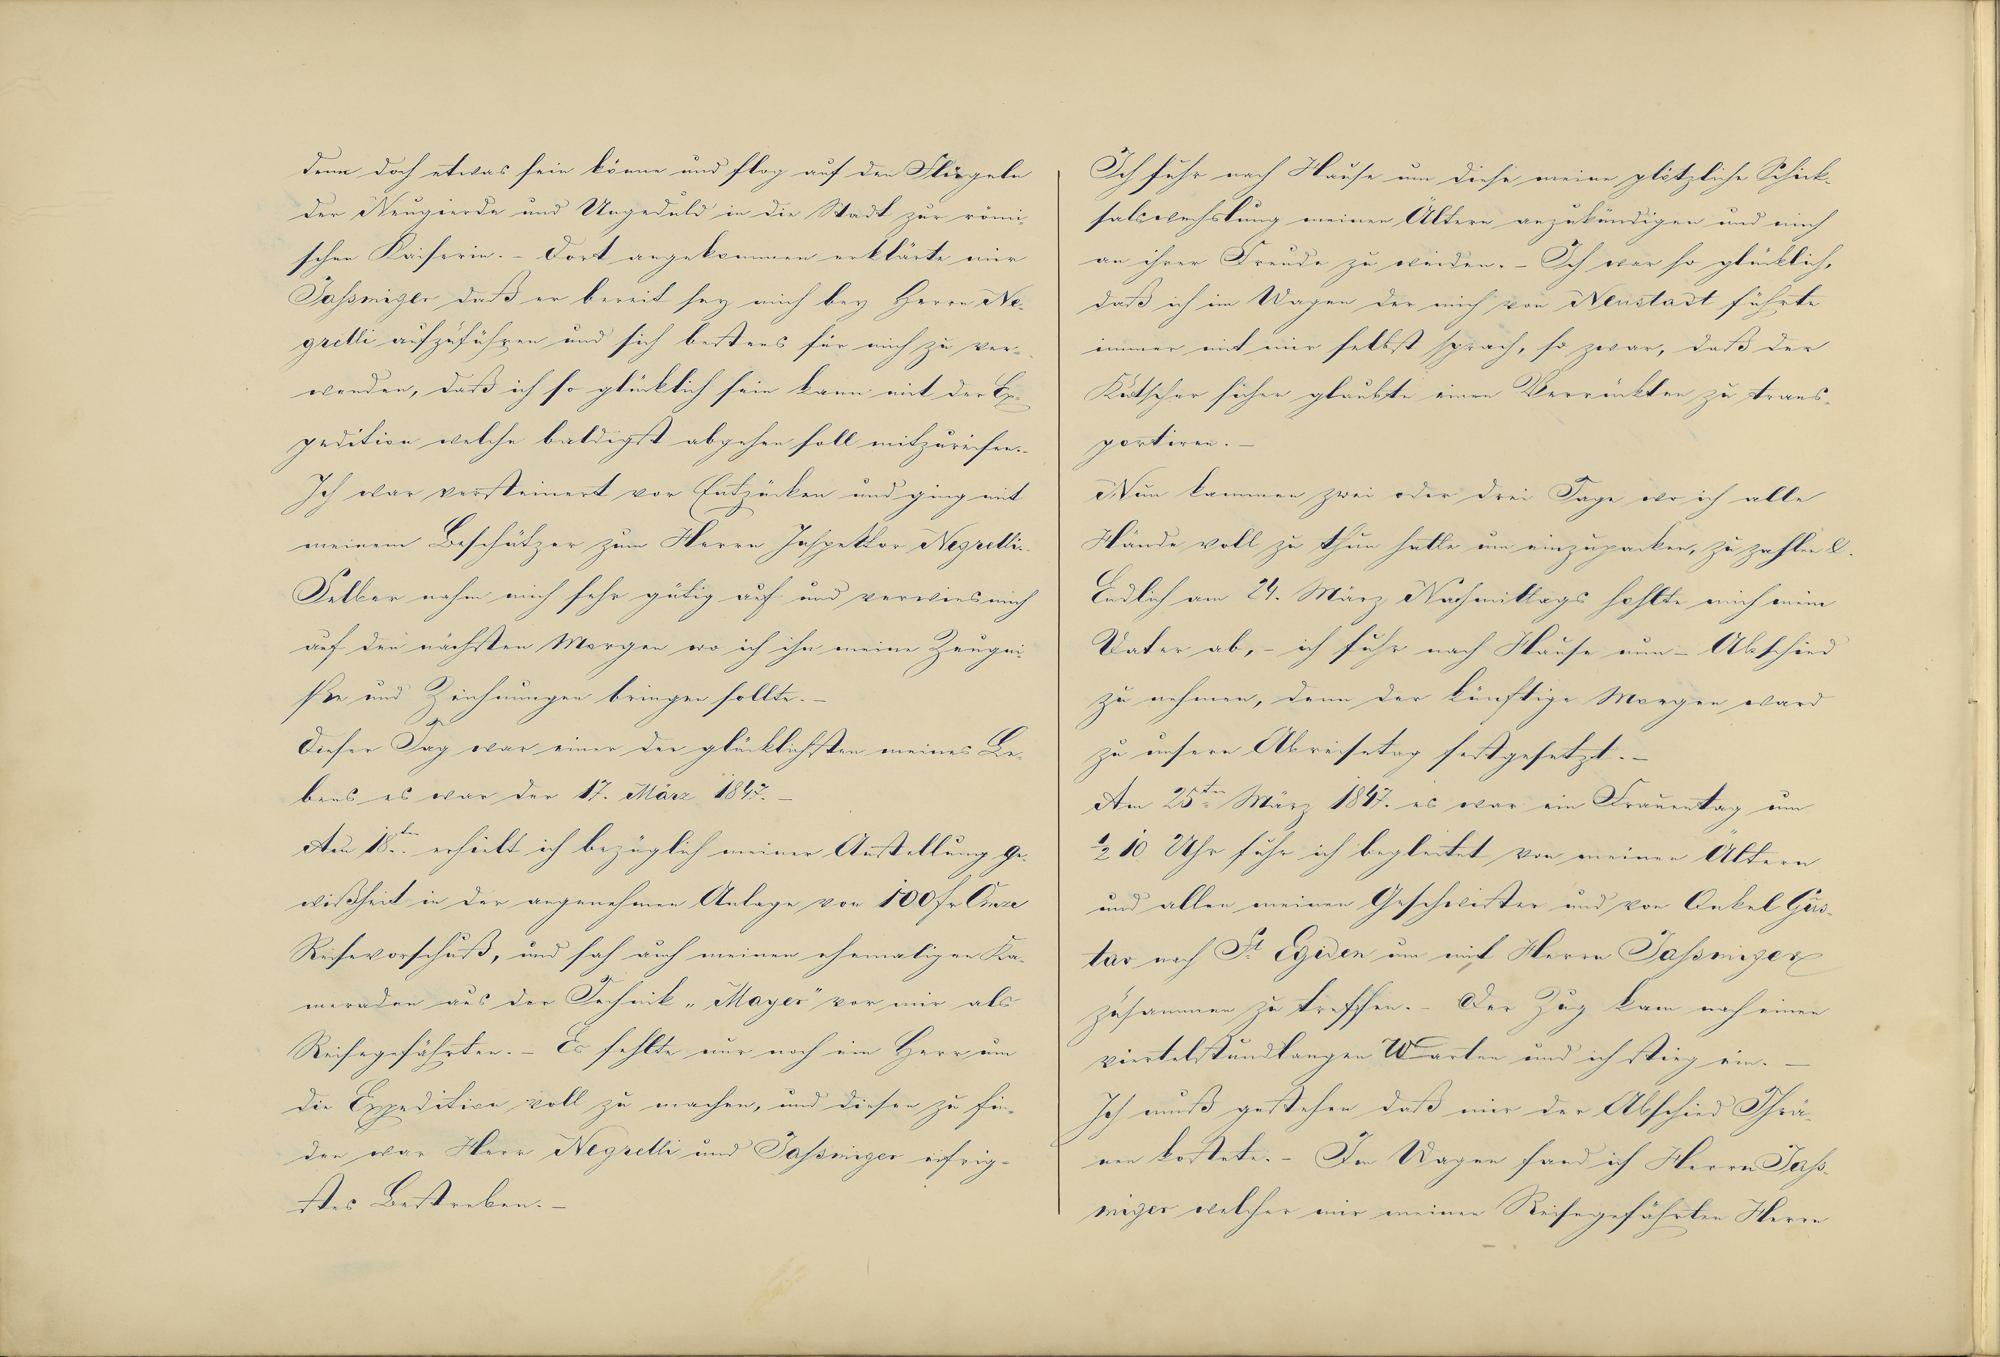 denn doch etwas sein könne und flog auf den Flügeln
der Neugierde und Ungeduld in die Stadt zur römi-
schen Kaiserin. – Dort angekommen erklärte mir
Jaßniger daß er bereit sey mich bey Herrn Ne-
grelli aufzuführen und sich bestens für mich zu ver-
wenden, daß ich so glücklich sein kann mit der Ex-
pedition welche baldigst abgehen soll mitzureisen. –
Ich war versteinert vor Entzücken und ging mit
meinem Beschützer zum Herrn Inspektor Negrelli.
Selber nahm mich sehr gütig auf und verwies mich
auf den nächsten Morgen wo ich ihn meine Zeugni-
ße und Zeichnungen bringen sollte. –
Dieser Tag war einer der glücklichsten meines Le-
bens es war der 17. März 1847. –
Am 18ten erhielt ich bezüglich meiner Anstellung Ge-
wißheit in der angenehmen Anlage von 100 fr
Reisevorschuß, und sah auch meinen ehemaligen Ka-
meraden aus der Technik „Mayer" vor mir als
Reisegefährten. – Es fehlte nur noch ein Herr um
die Expedition voll zu machen, und diesen zu fin-
den war Herr Negrelli und Jaßniger eifrig-
stes Bestreben. –
Ich fuhr nach Hause um diese meine plötzliche Schick-
salswechslung meinen Ältern anzukündigen und mich
an ihrer Freude zu weiden. – Ich war so glücklich,
daß ich im Wagen der mich von Neustadt führte
immer mit mir selbst sprach, so zwar, daß der
Kutscher sicher glaubte einen Verrückten zu trans-
portiren. –
Nun kammen zwei oder drei Tage wo ich alle
Hände voll zu thun hatte um einzupacken, zu zahlen &.
Endlich am 24. März Nachmittags hohlte mich mein
Vater ab, – ich fuhr nach Hause um – Abschied
zu nehmen, denn der künftige Morgen ward
zu unsern Abreisetag festgesetzt. –
Am 25ten März 1847. es war ein Frauentag um
½ 10 Uhr fuhr ich begleitet von meinen Ältern
und allen meinen Geschwister und von Onkel Gus-
tav nach St Egiden um mit Herrn Jaßniger
zusammen zu treffen. – Der Zug kam nach einen
viertelstundlangen Warten und ich stieg ein. –
Ich muß gestehen daß mir der Abschied Thrä-
nen kostete. – Im Wagen fand ich Herrn Jaß-
niger welcher mir meinen Reisegefährten Herrn